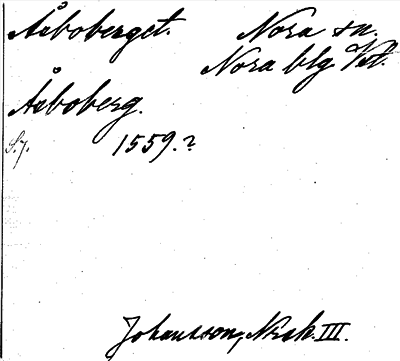 Åsboberget. Nora sn.
Nora blg Vstl.
Åsboberg.
S. 7. 1559.?
Johansson, Norask. III.